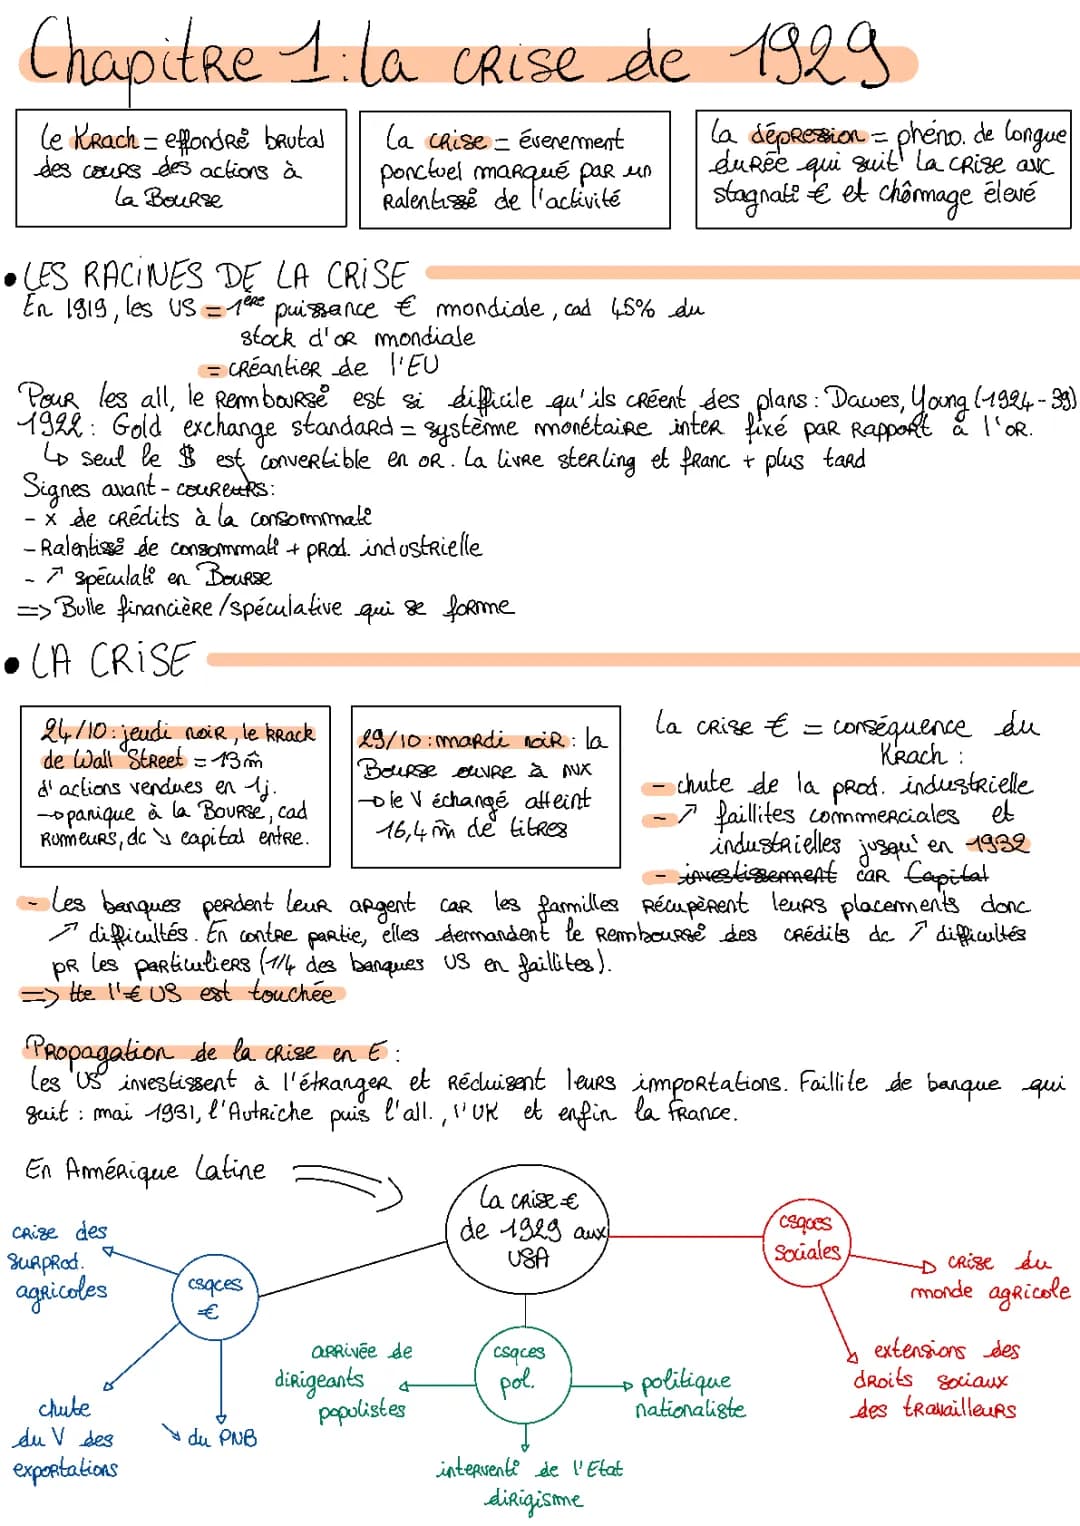 Chapitre 1: la crise de 1929
Le Krach = effondré brutal
des cours des actions à
la Bourse
La crise = évenement
ponctuel marqué par un
Ralentissé de l'activité
La dépression = phéno. de longue
durée qui suit la crise avc
stagnat° € et chômmage élevé
• LES RACINES DE LA CRISE
En 1919, les US = 1ère puissance € mondiale, cad 45% du
stock d'or mondiale
= créantier de l'EU
Pour les all, le Remboursé est si difficile qu'ils créent des plans : Dawes, Young (1924-39)
1922 : Gold exchange standard = système monétaire inter fixé par Rapport à l'or.
↳ seul le $ est convertible en or. La livre sterling et franc + plus tard
Signes avant-coureurs:
- x de crédits à la consommat°
- Ralentissé de consommat° + prod. industrielle
- ↗ spéculat° en Bourse
=> Bulle financière/spéculative qui se forme
• LA CRISE
24/10 : jeudi noir, le krack
de Wall Street = 13m̂
d'actions vendues en 1j.
→ panique à la Bourse, cad
Rumeurs, dc ↘ capital entre.
29/10 : mardi noir : la
Bourse ouvre à nx
→ le V échangé atteint
16,4m̂ de titres
La crise € = conséquence du
Krach :
- chute de la prod. industrielle
- ↗ faillites commerciales et
industrielles jusqu'en 1932
- investissement car Capital
- Les banques perdent leur argent car les familles Récupèrent leurs placements donc
↗ difficultés. En contre partie, elles demandent le Remboursé des crédits dc ↗ difficultés
pr les particuliers (1/4 des banques US en faillites).
=> tte l'€ US est touchée
Propagation de la crise en E :
Les US investissent à l'étranger et Réduisent leurs importations. Faillite de banque qui
suit : mai 1931, l'Autriche puis l'all., l'UK et enfin la France.
En Amérique Latine
La crise €
de 1929 aux
USA
csqces
€
crise des
surprod.
agricoles
chute
du V des
exportations
↘ du PNB
csqces
pol.
arrivée de
dirigeants
populistes
politique
nationaliste
intervent° de l'Etat
dirigisme
csqces
sociales
crise du
monde agricole
extensions des
droits sociaux
des travailleurs